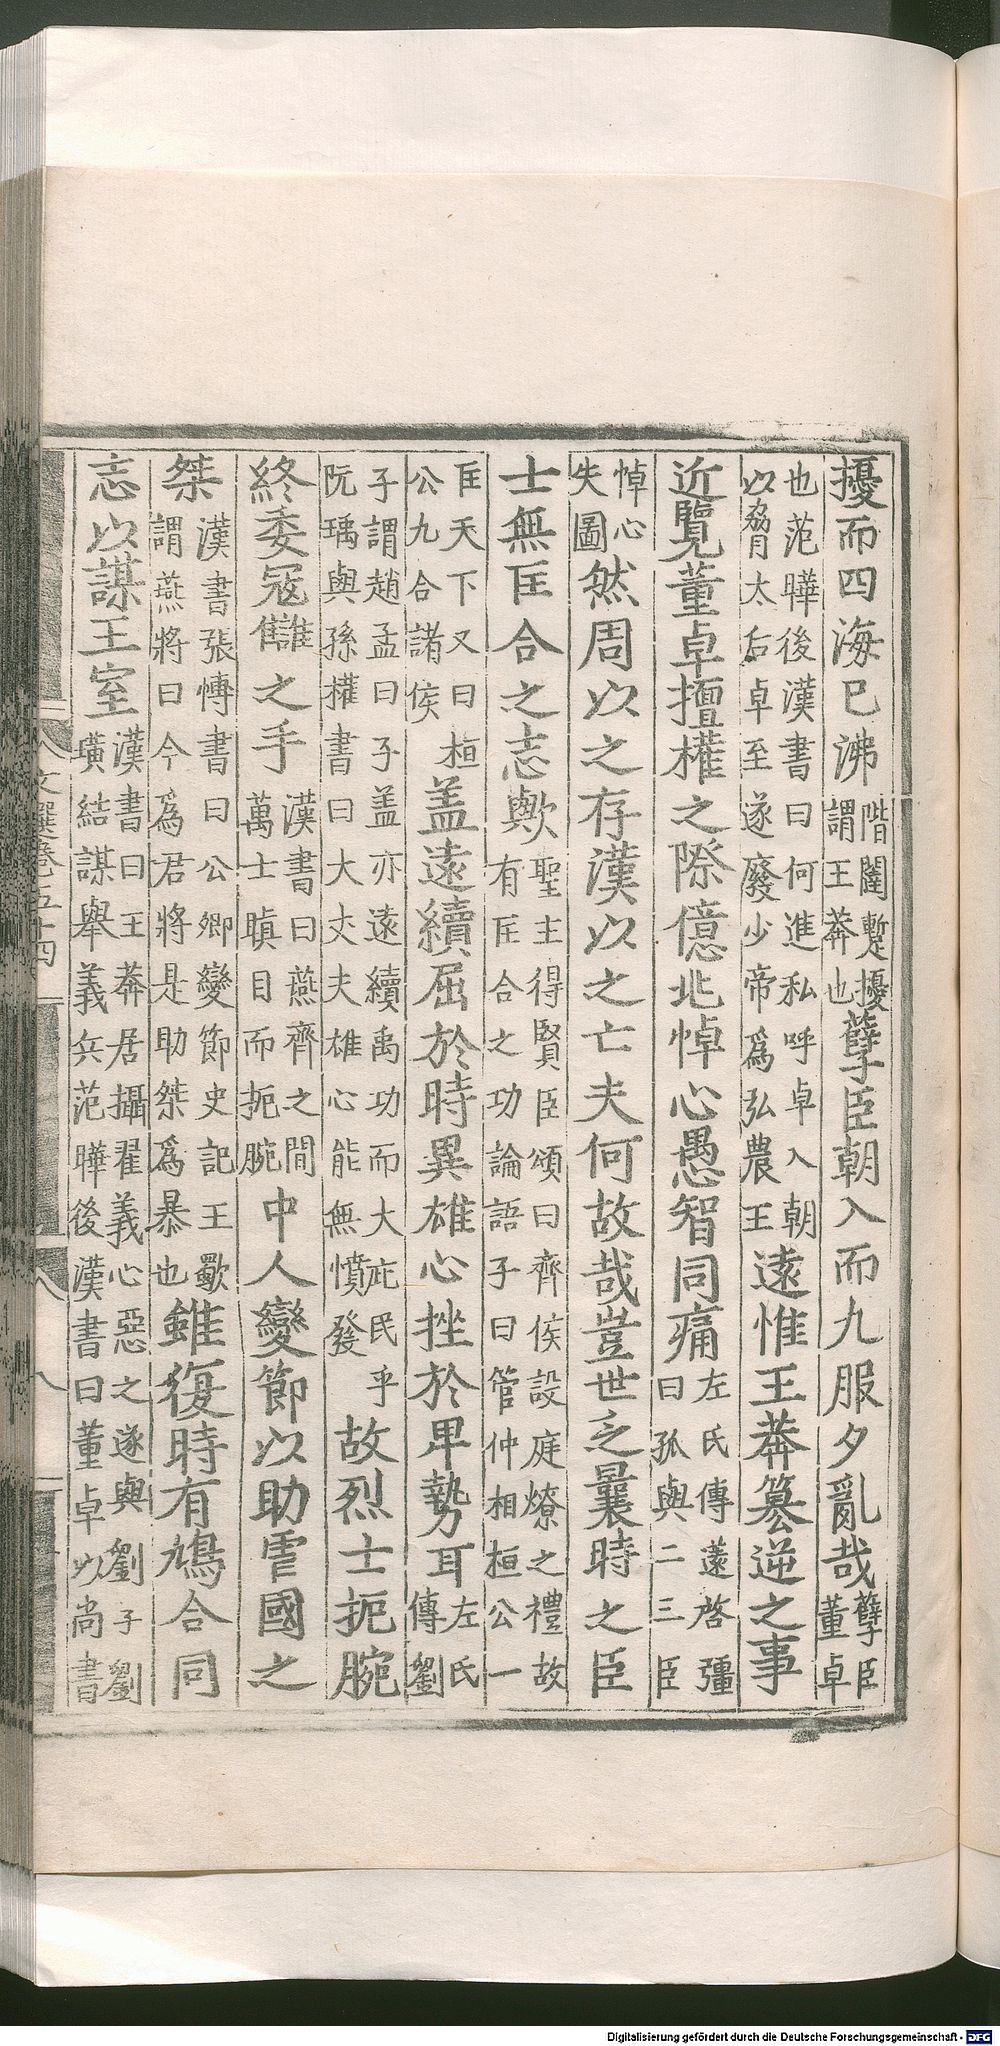 擾而四海已沸階闥蹔擾謂王莽也孽臣朝入而九服夕亂哉孽臣董卓
也范曄後漢書曰何進私呼卓入朝以脅太后卓至遂廢少帝爲弘農王遠惟王莽篡逆之事
近覽董卓擅權之際億兆悼心愚智同痛左氏傳薳啓彊曰孤與二三臣
悼心失圖然周以之存漢以之亡夫何故哉豈世乏曩時之臣
士無匡合之志歟聖主得賢臣頌曰齊侯設庭燎之禮故有匡合之功論語子曰管仲相桓公一
匡天下又曰桓公九合諸侯蓋遠續屈於時異雄心挫於卑勢耳左氏傳劉
子謂趙孟曰子盖亦遠續禹功而大庇民乎阮瑀與孫權書曰大丈夫雄心能無憤發故烈士扼腕
終委寇讎之手漢書曰燕齊之間萬士瞋目而扼腕中人變節以助虐國之
桀漢書張博書曰公卿變節史記王歜謂燕將曰今爲君將是助桀爲暴也雖復時有鳩合同
志以謀王室漢書曰王莽居攝翟義心惡之遂與劉子劉璜結謀舉義兵范曄後漢書曰董卓以尚書
文選卷五十四
Digitalisierung gefördert durch die Deutsche Forschungsgemeinschaft - DFG